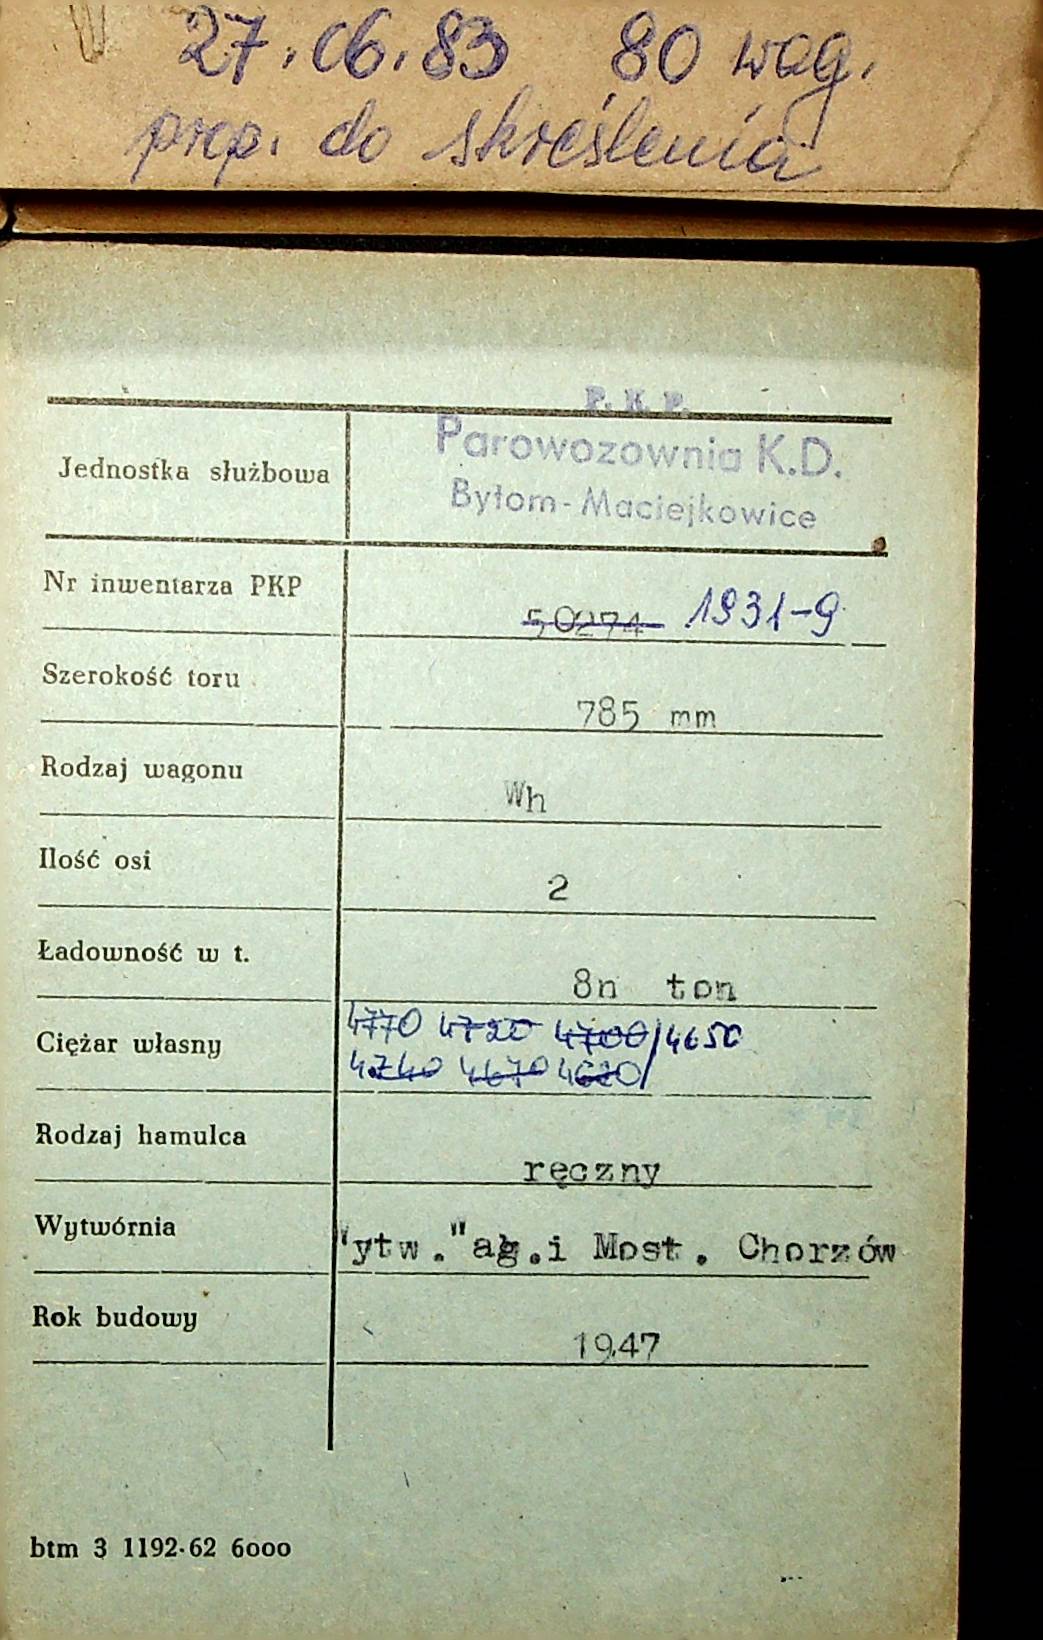 27.06.83 80 wag.
prop. do skreślenia
P. K. P.
Parowozownia K.D.
Bytom-Maciejkowice
Jednostka służbowa
Nr inwentarza PKP
50274 1931-9
Szerokość toru
785 mm
Rodzaj wagonu
Wh
Ilość osi
2
Ładowność w t.
8n ton
Ciężar własny
4770 4720 4700/4650
4740 4670 4620/
Rodzaj hamulca
ręczny
Wytwórnia
"ytw."ag.i Most. Chorzów
Rok budowy
1947
btm 3 1192-62 6000